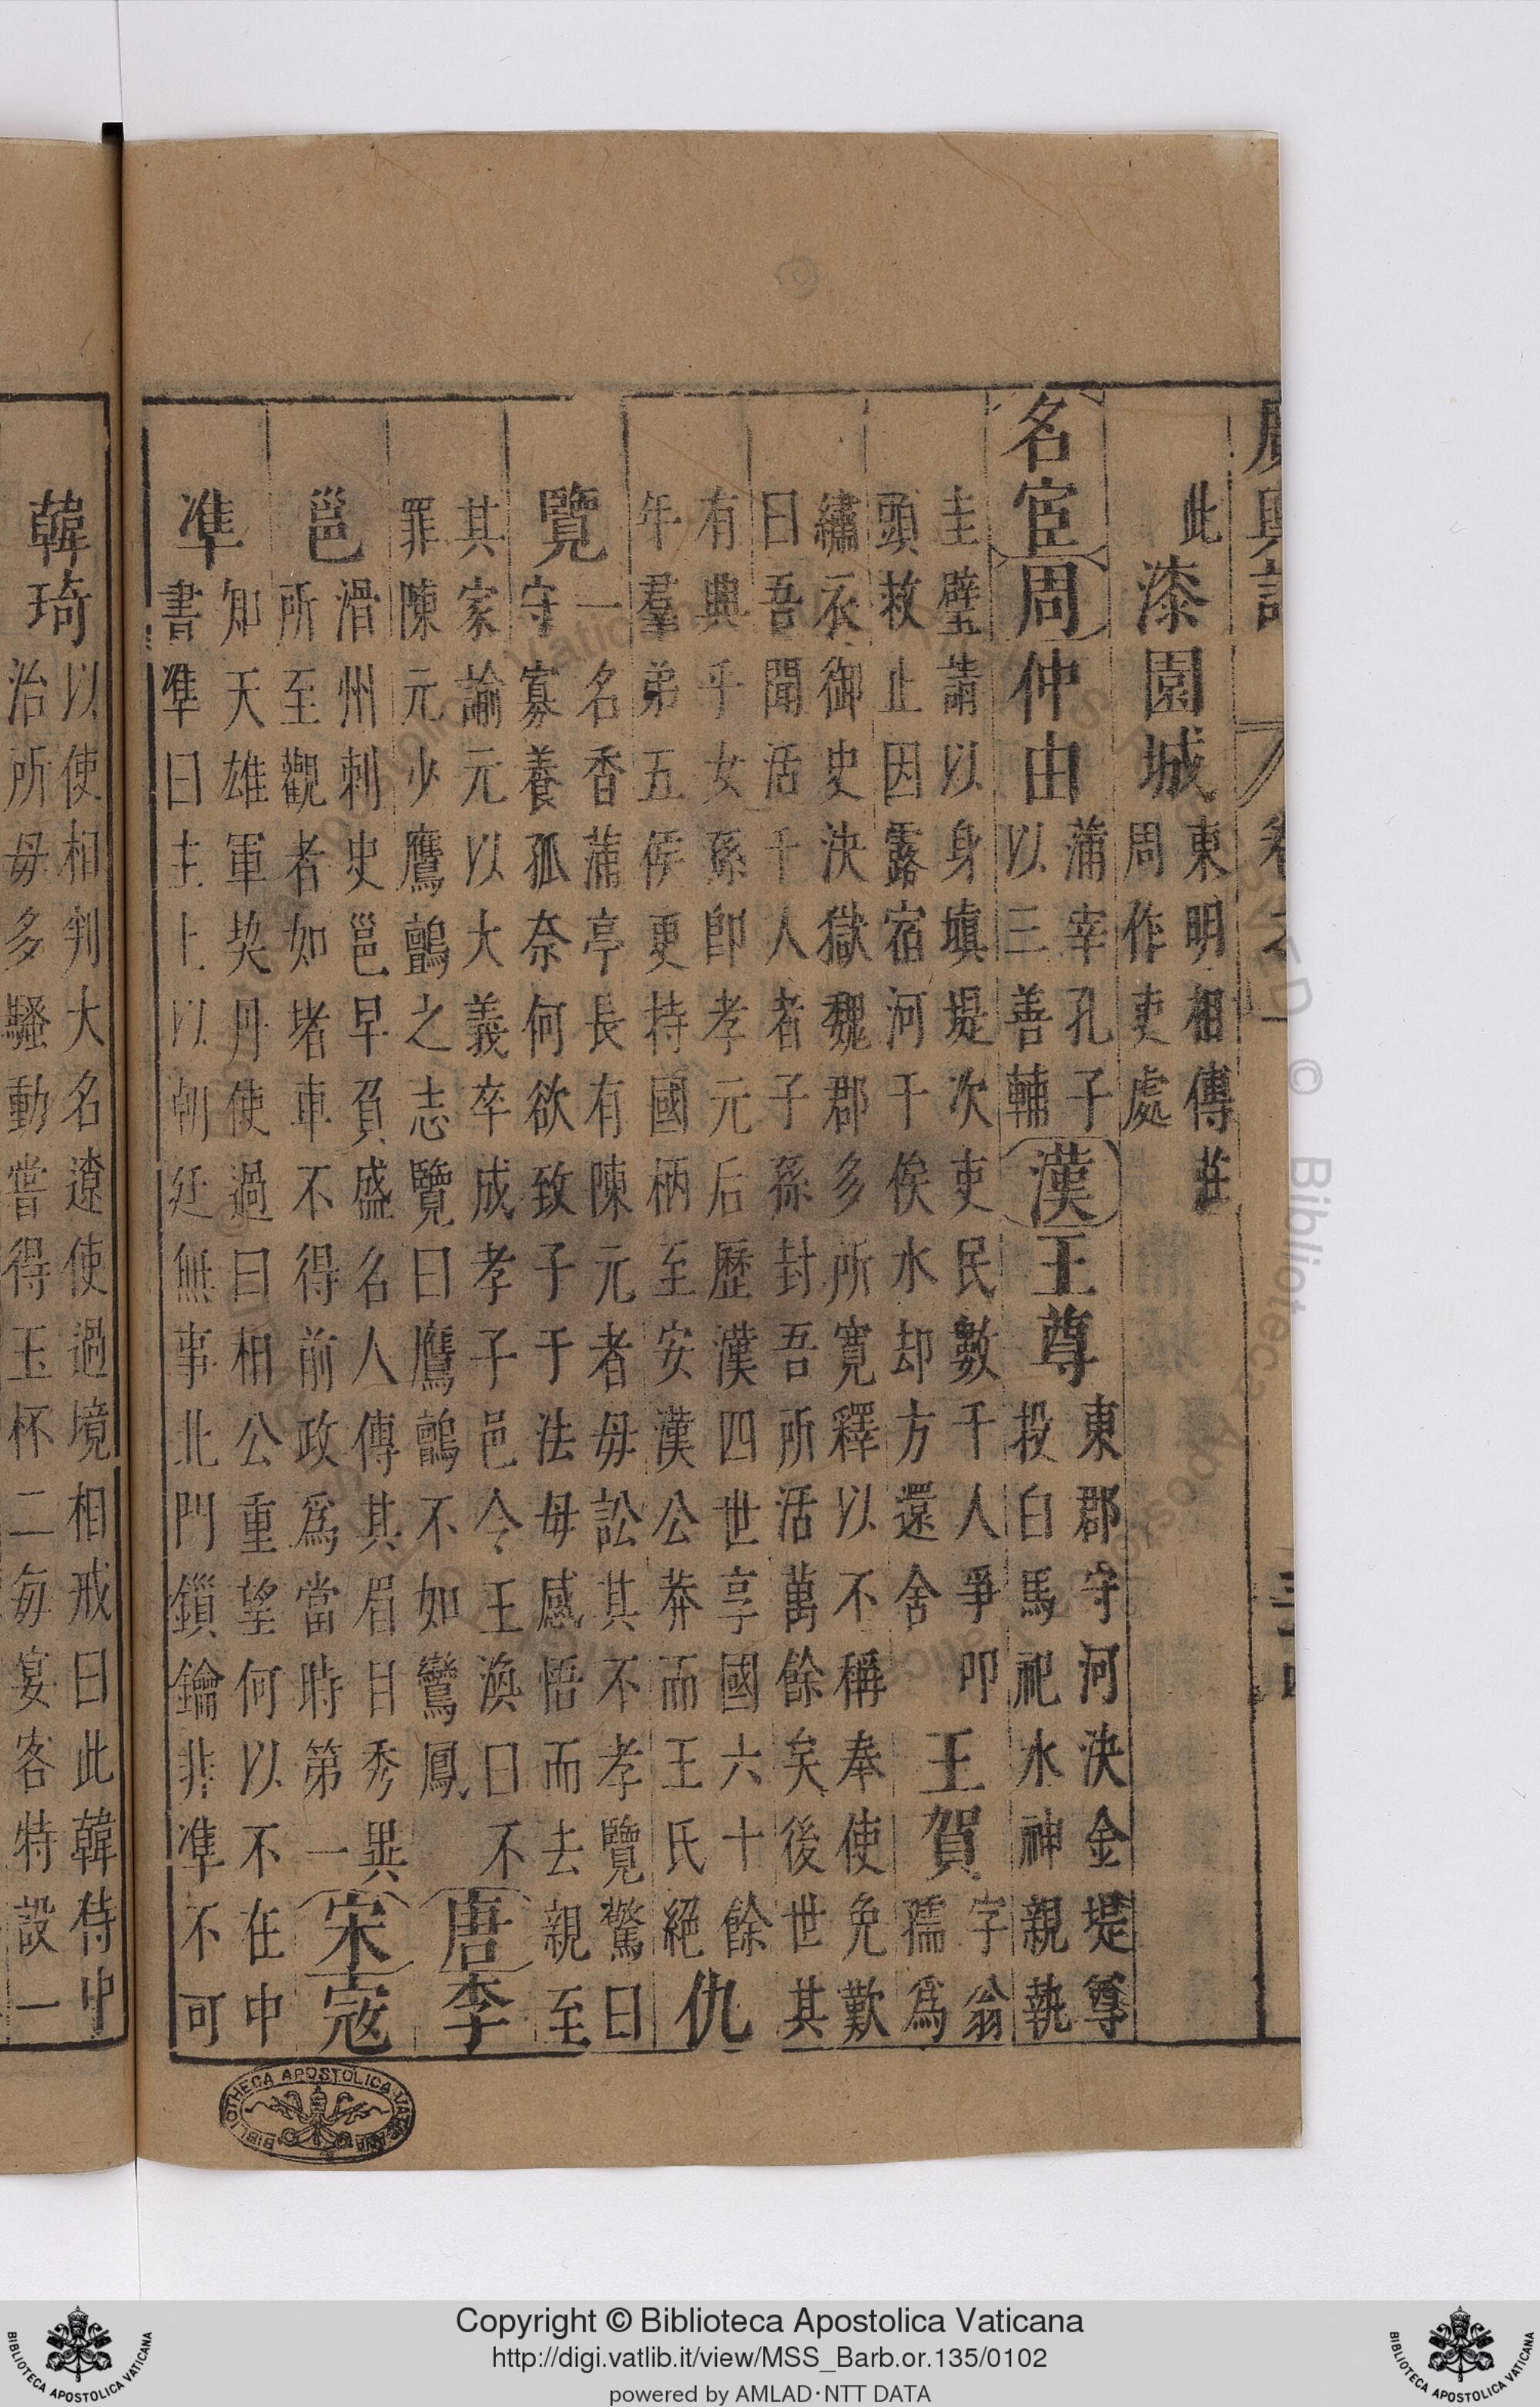 廣輿記 卷之一
此
漆園城
東明相傳莊
周作吏處
名宦 周 仲由
蒲宰孔子
以三善輔
漢 王尊
東郡守河決金堤尊
投白馬祀水神親執
圭璧請以身填堤次吏民數千人爭叩
頭救止因露宿河干俟水却方還舍
王賀
字翁
孺爲
繡衣御史決獄魏郡多所寬釋以不稱奉使免歎
曰吾聞活千人者子孫封吾所活萬餘矣後世其
有興乎女孫即孝元后歷漢四世享國六十餘
年羣弟五侯更持國柄至安漢公莽而王氏絕
仇
覽
一名香蒲亭長有陳元者毋訟其不孝覽驚曰
守寡養孤奈何欲致子于法毋感悟而去親至
其家諭元以大義卒成孝子邑令王渙曰不
罪陳元少鷹鸇之志覽曰鷹鸇不如鸞鳳
唐 李
邕
滑州刺史邕早負盛名人傳其眉目秀異
所至觀者如堵車不得前政爲當時第一
宋 寇
準
知天雄軍契丹使過曰相公重望何以不在中
書準曰主上以朝廷無事北門鎖鑰非準不可
韓琦
以使相判大名遼使過境相戒曰此韓侍中
治所毋多騷動嘗得玉杯二每宴客特設一
BIBLIOTHECA APOSTOLICA VATICANA
Copyright © Biblioteca Apostolica Vaticana
http://digi.vatlib.it/view/MSS_Barb.or.135/0102
powered by AMLAD·NTT DATA
BIBLIOTECA APOSTOLICA VATICANA
BIBLIOTECA APOSTOLICA VATICANA